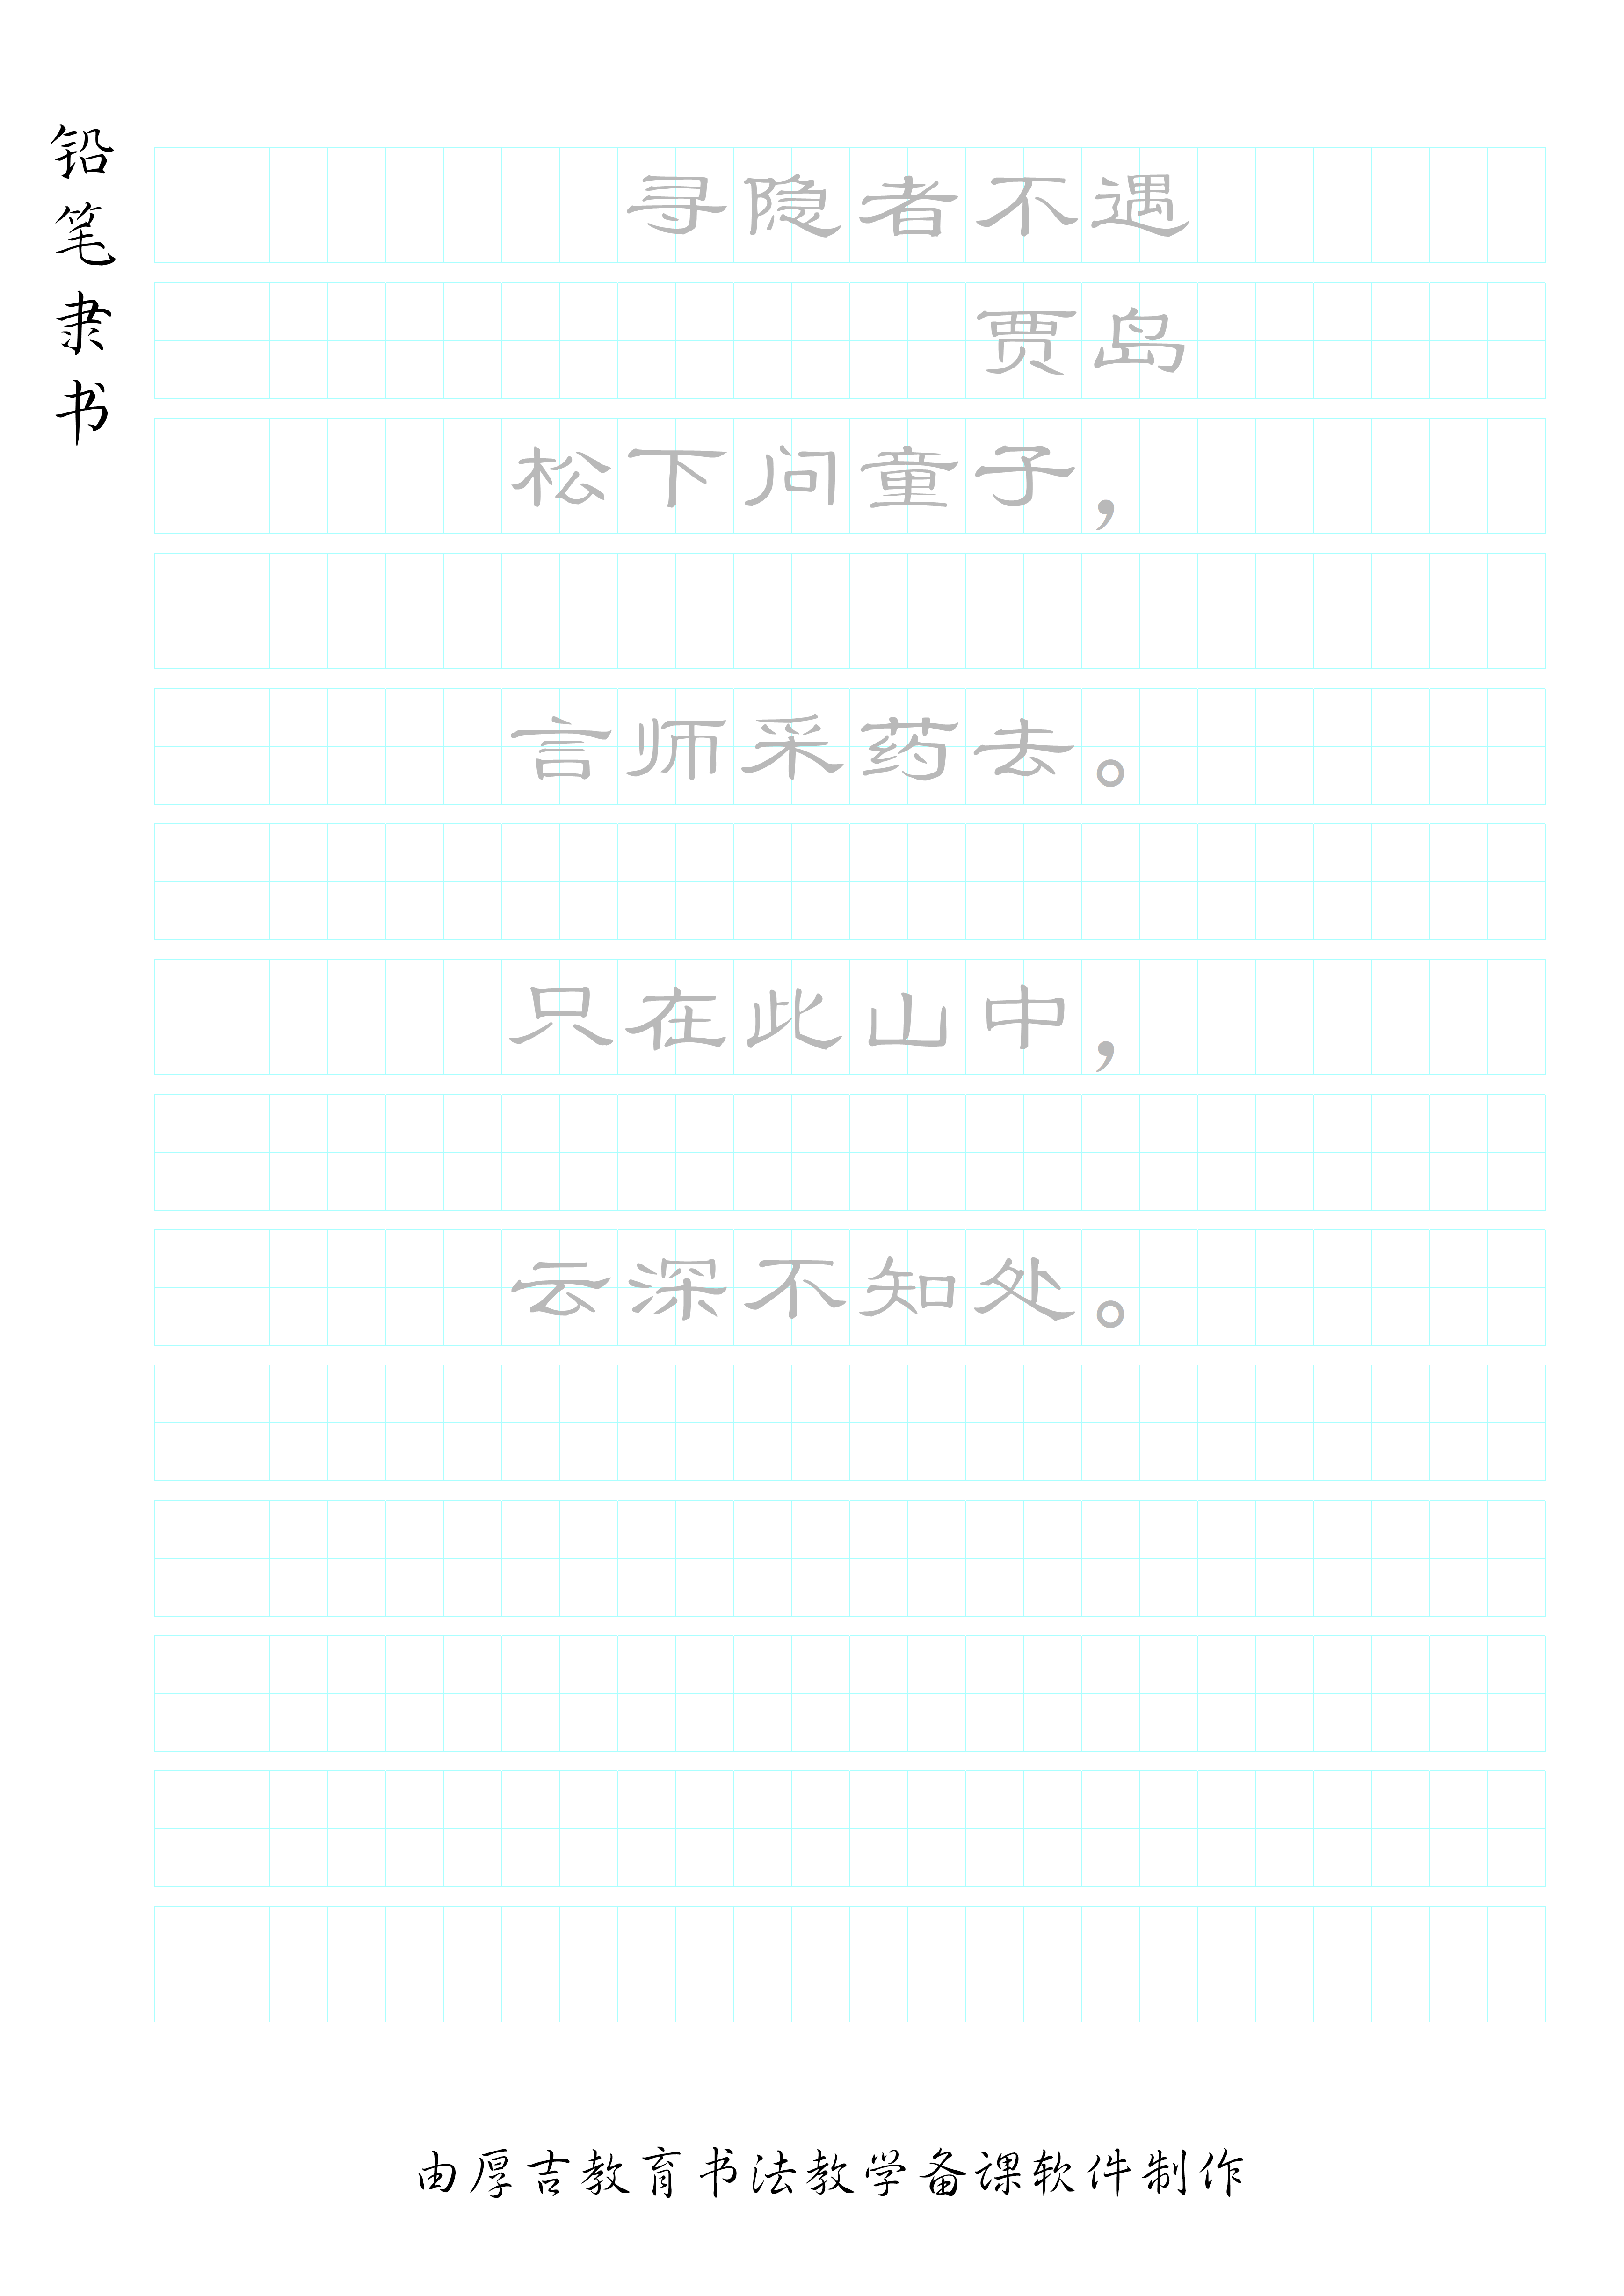 铅笔隶书
寻隐者不遇
贾岛
松下问童子，
言师采药去。
只在此山中，
云深不知处。
由厚吉教育书法教学备课软件制作